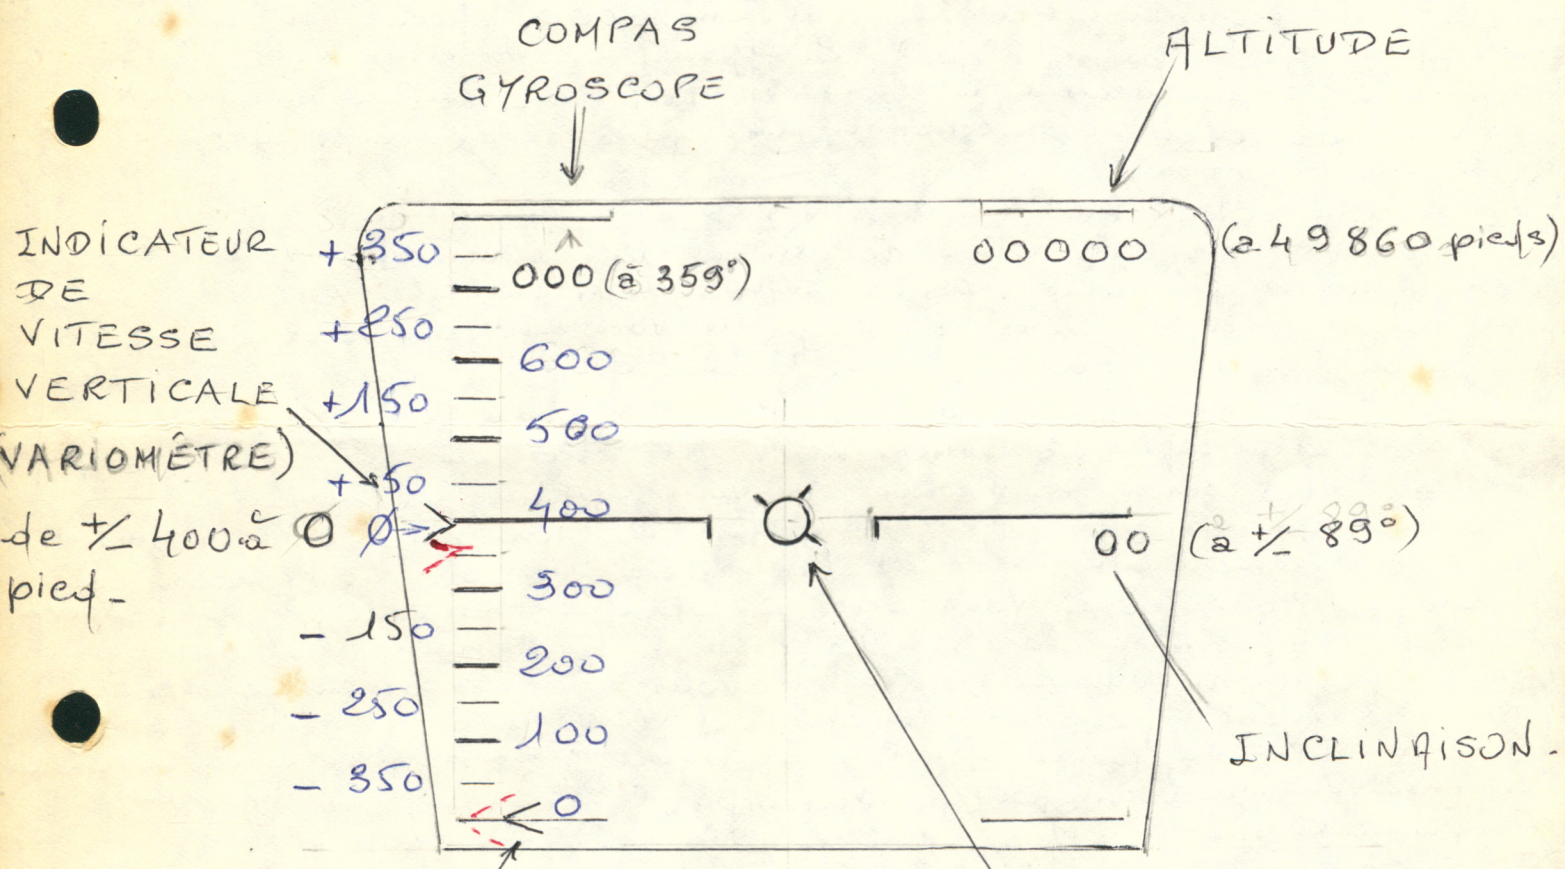 COMPAS
GYROSCOPE
ALTITUDE
INDICATEUR
DE
VITESSE
VERTICALE
(VARIOMÊTRE)
de +/- 400 à 0
pied-
+350
+250
+150
+50
0
- 150
- 250
- 350
000 (à 359°)
600
500
400
300
200
100
0
00000 (à 49860 pieds)
00 (à +/- 89°)
INCLINAISON.